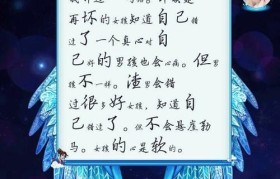 再坏的女孩知道自己错
过了一个真心对自
己好的男孩也会心痛。但男
孩不一样。渣男会错
过很多好女孩，知道自
己错过了。但不会悬崖勒
马。女孩的心是软的。